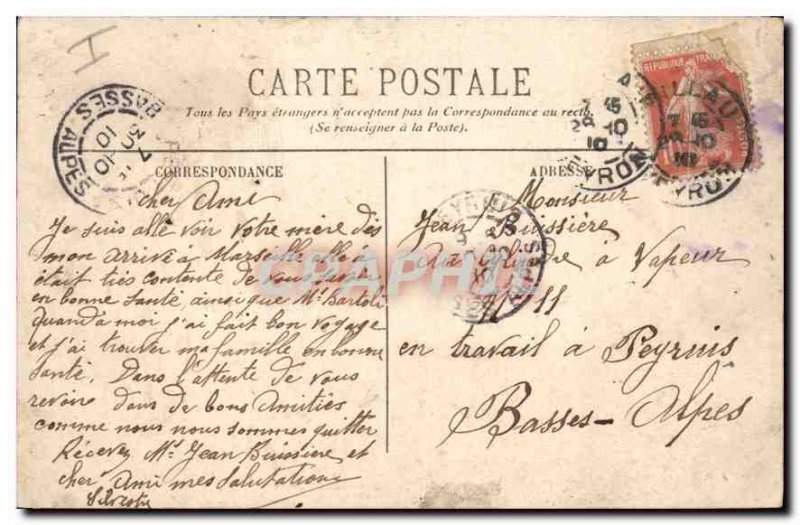 I
CARTE POSTALE
Tous les Pays étrangers n'acceptent pas la Correspondance au recto
(Se renseigner à la Poste).
CORRESPONDANCE
cher Ami
Je suis allé voir votre mère dès
mon arrivé à Marseille elle à
était ties contente de vous savoir
en bonne santé, ainsi que Mr Bartoli
quand à moi j'ai fait bon voyage
et j'ai trouver ma famille en bonne
santé. Dans l'attente de vous
revoire dans de bons amitiés
comme nous nous sommes quitter
Récevez Mr Jean Buissière et
cher Ami mes salutations
Silvestre
ADRESSE
Monsieur
Jean Buissière
à Vapeur
11
en travail à Peyruis
Basses-Alpes
REPUBLIQUE FRANÇAISE
MILLAU
7 45
28-10
10
AVEYRON
BASSES-ALPES
10